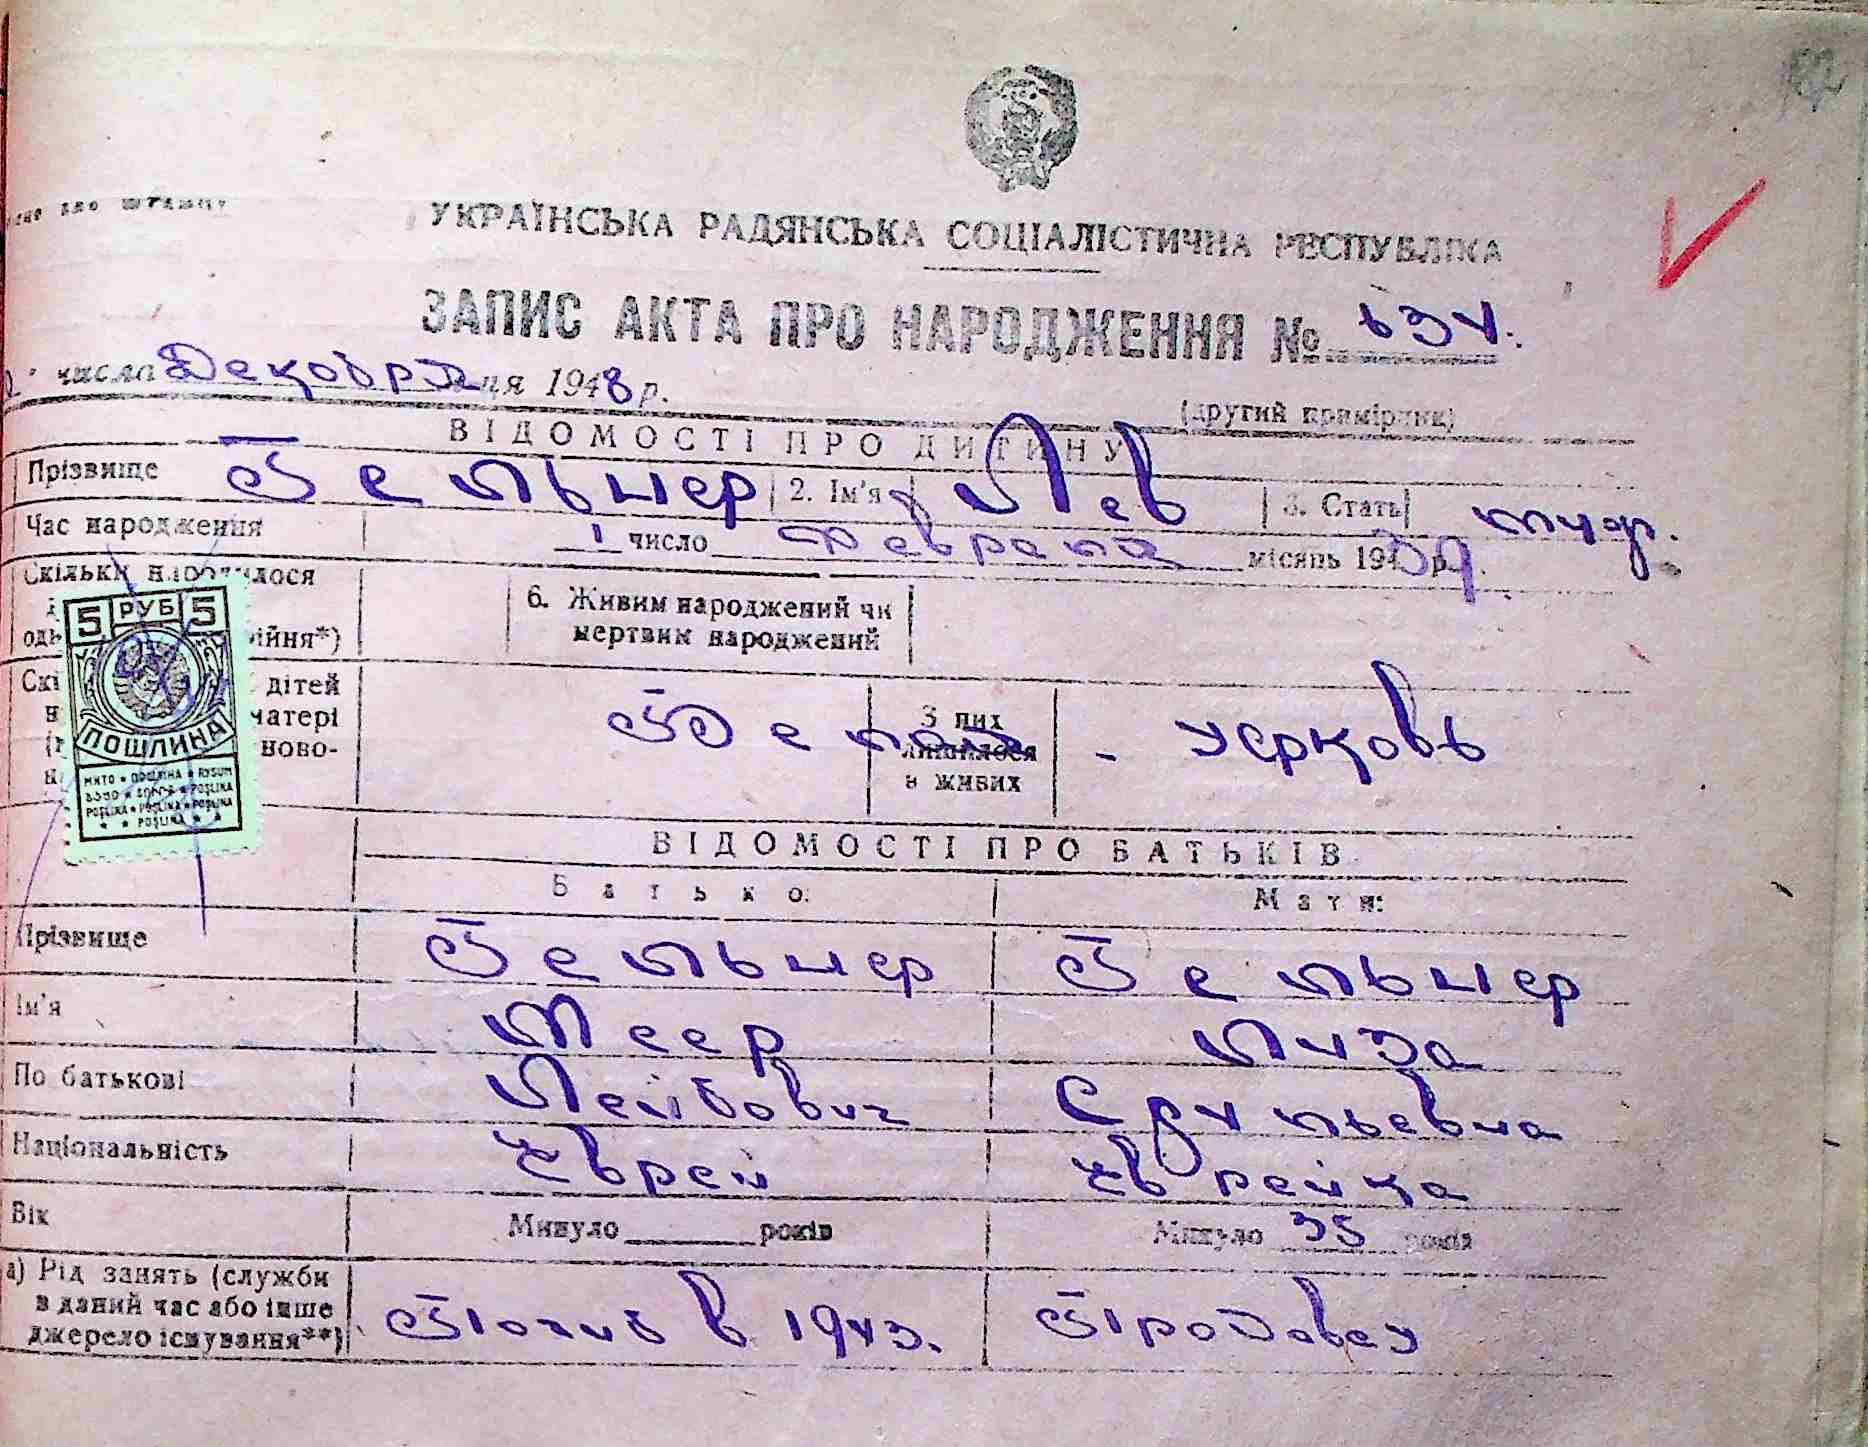 УКРАЇНСЬКА РАДЯНСЬКА СОЦІАЛІСТИЧНА РЕСПУБЛІКА
ЗАПИС АКТА ПРО НАРОДЖЕННЯ №
числа Декабря ця 1948 р.
(другий примірник)
ВІДОМОСТІ ПРО ДИТИНУ
Прізвище Гельнер 2. Ім'я Лев 3. Стать муж.
Час народження 1 число Февраля місяць 1939 р.
Скільки народилося
6. Живим народжений чи мертвим народжений
ійня*)
5 РУБ 5
ПОШЛИНА
дітей
матері
ново-
З них лишилося в живих
- Церковь
ВІДОМОСТІ ПРО БАТЬКІВ
Батько: Мати:
Прізвище Гельнер Гельнер
Ім'я Меер Лиза
По батькові Лейбович Срульевна
Національність Еврей Еврейка
Вік Минуло років Минуло 35 років
а) Рід занять (служби в даний час або інше джерело існування**) Погиб в 1943. Продавец